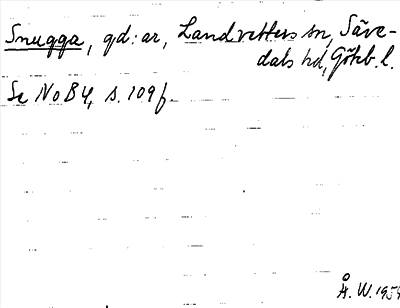 Snugga, gd:ar, Landvetters sn, Säve-
dals hd, Götebl.
Se NoB 4, s. 109 f.
Å. W. 1954